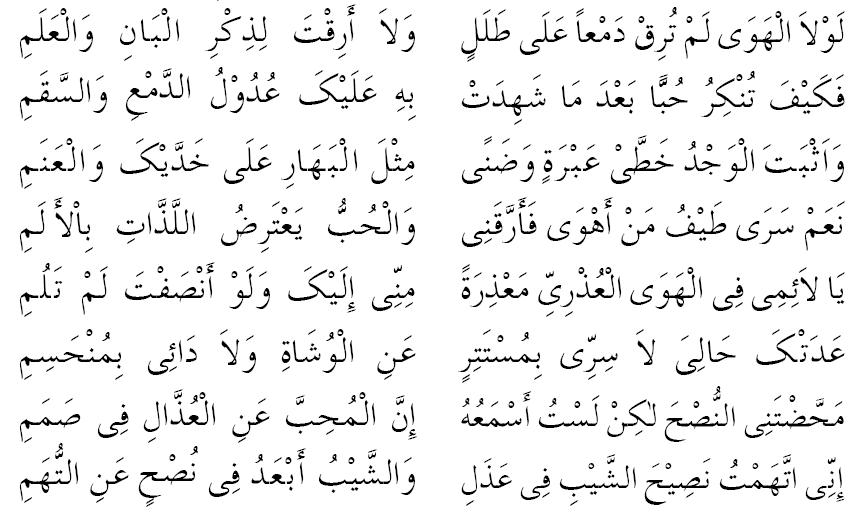 لَوْلاَ الْهَوَى لَمْ تُرِقْ دَمْعاً عَلَى طَلَلٍ وَلاَ أَرِقْتَ لِذِكْرِ الْبَانِ وَالْعَلَمِ
فَكَيْفَ تُنْكِرُ حُبًّا بَعْدَ مَا شَهِدَتْ بِهِ عَلَيْكَ عُدُوْلُ الدَّمْعِ وَالسَّقَمِ
وَاَثْبَتَ الْوَجْدُ خَطَّىْ عَبْرَةٍ وَضَنًى مِثْلَ الْبَهَارِ عَلَى خَدَّيْكَ وَالْعَنَمِ
نَعَمْ سَرَى طَيْفُ مَنْ أَهْوَى فَأَرَّقَنِى وَالْحُبُّ يَعْتَرِضُ اللَّذَّاتِ بِاْلأَلَمِ
يَا لاَئِمِى فِى الْهَوَى الْعُذْرِىِّ مَعْذِرَةً مِنِّى إِلَيْكَ وَلَوْ أَنْصَفْتَ لَمْ تَلُمِ
عَدَتْكَ حَالِىَ لاَ سِرِّى بِمُسْتَتِرٍ عَنِ الْوُشَاةِ وَلاَ دَائِى بِمُنْحَسِمِ
مَحَّضْتَنِى النُّصْحَ لٰكِنْ لَسْتُ أَسْمَعُهُ إِنَّ الْمُحِبَّ عَنِ الْعُذَّالِ فِى صَمَمِ
إِنِّى اتَّهَمْتُ نَصِيْحَ الشَّيْبِ فِى عَذَلِ وَالشَّيْبُ أَبْعَدُ فِى نُصْحٍ عَنِ التُّهَمِ